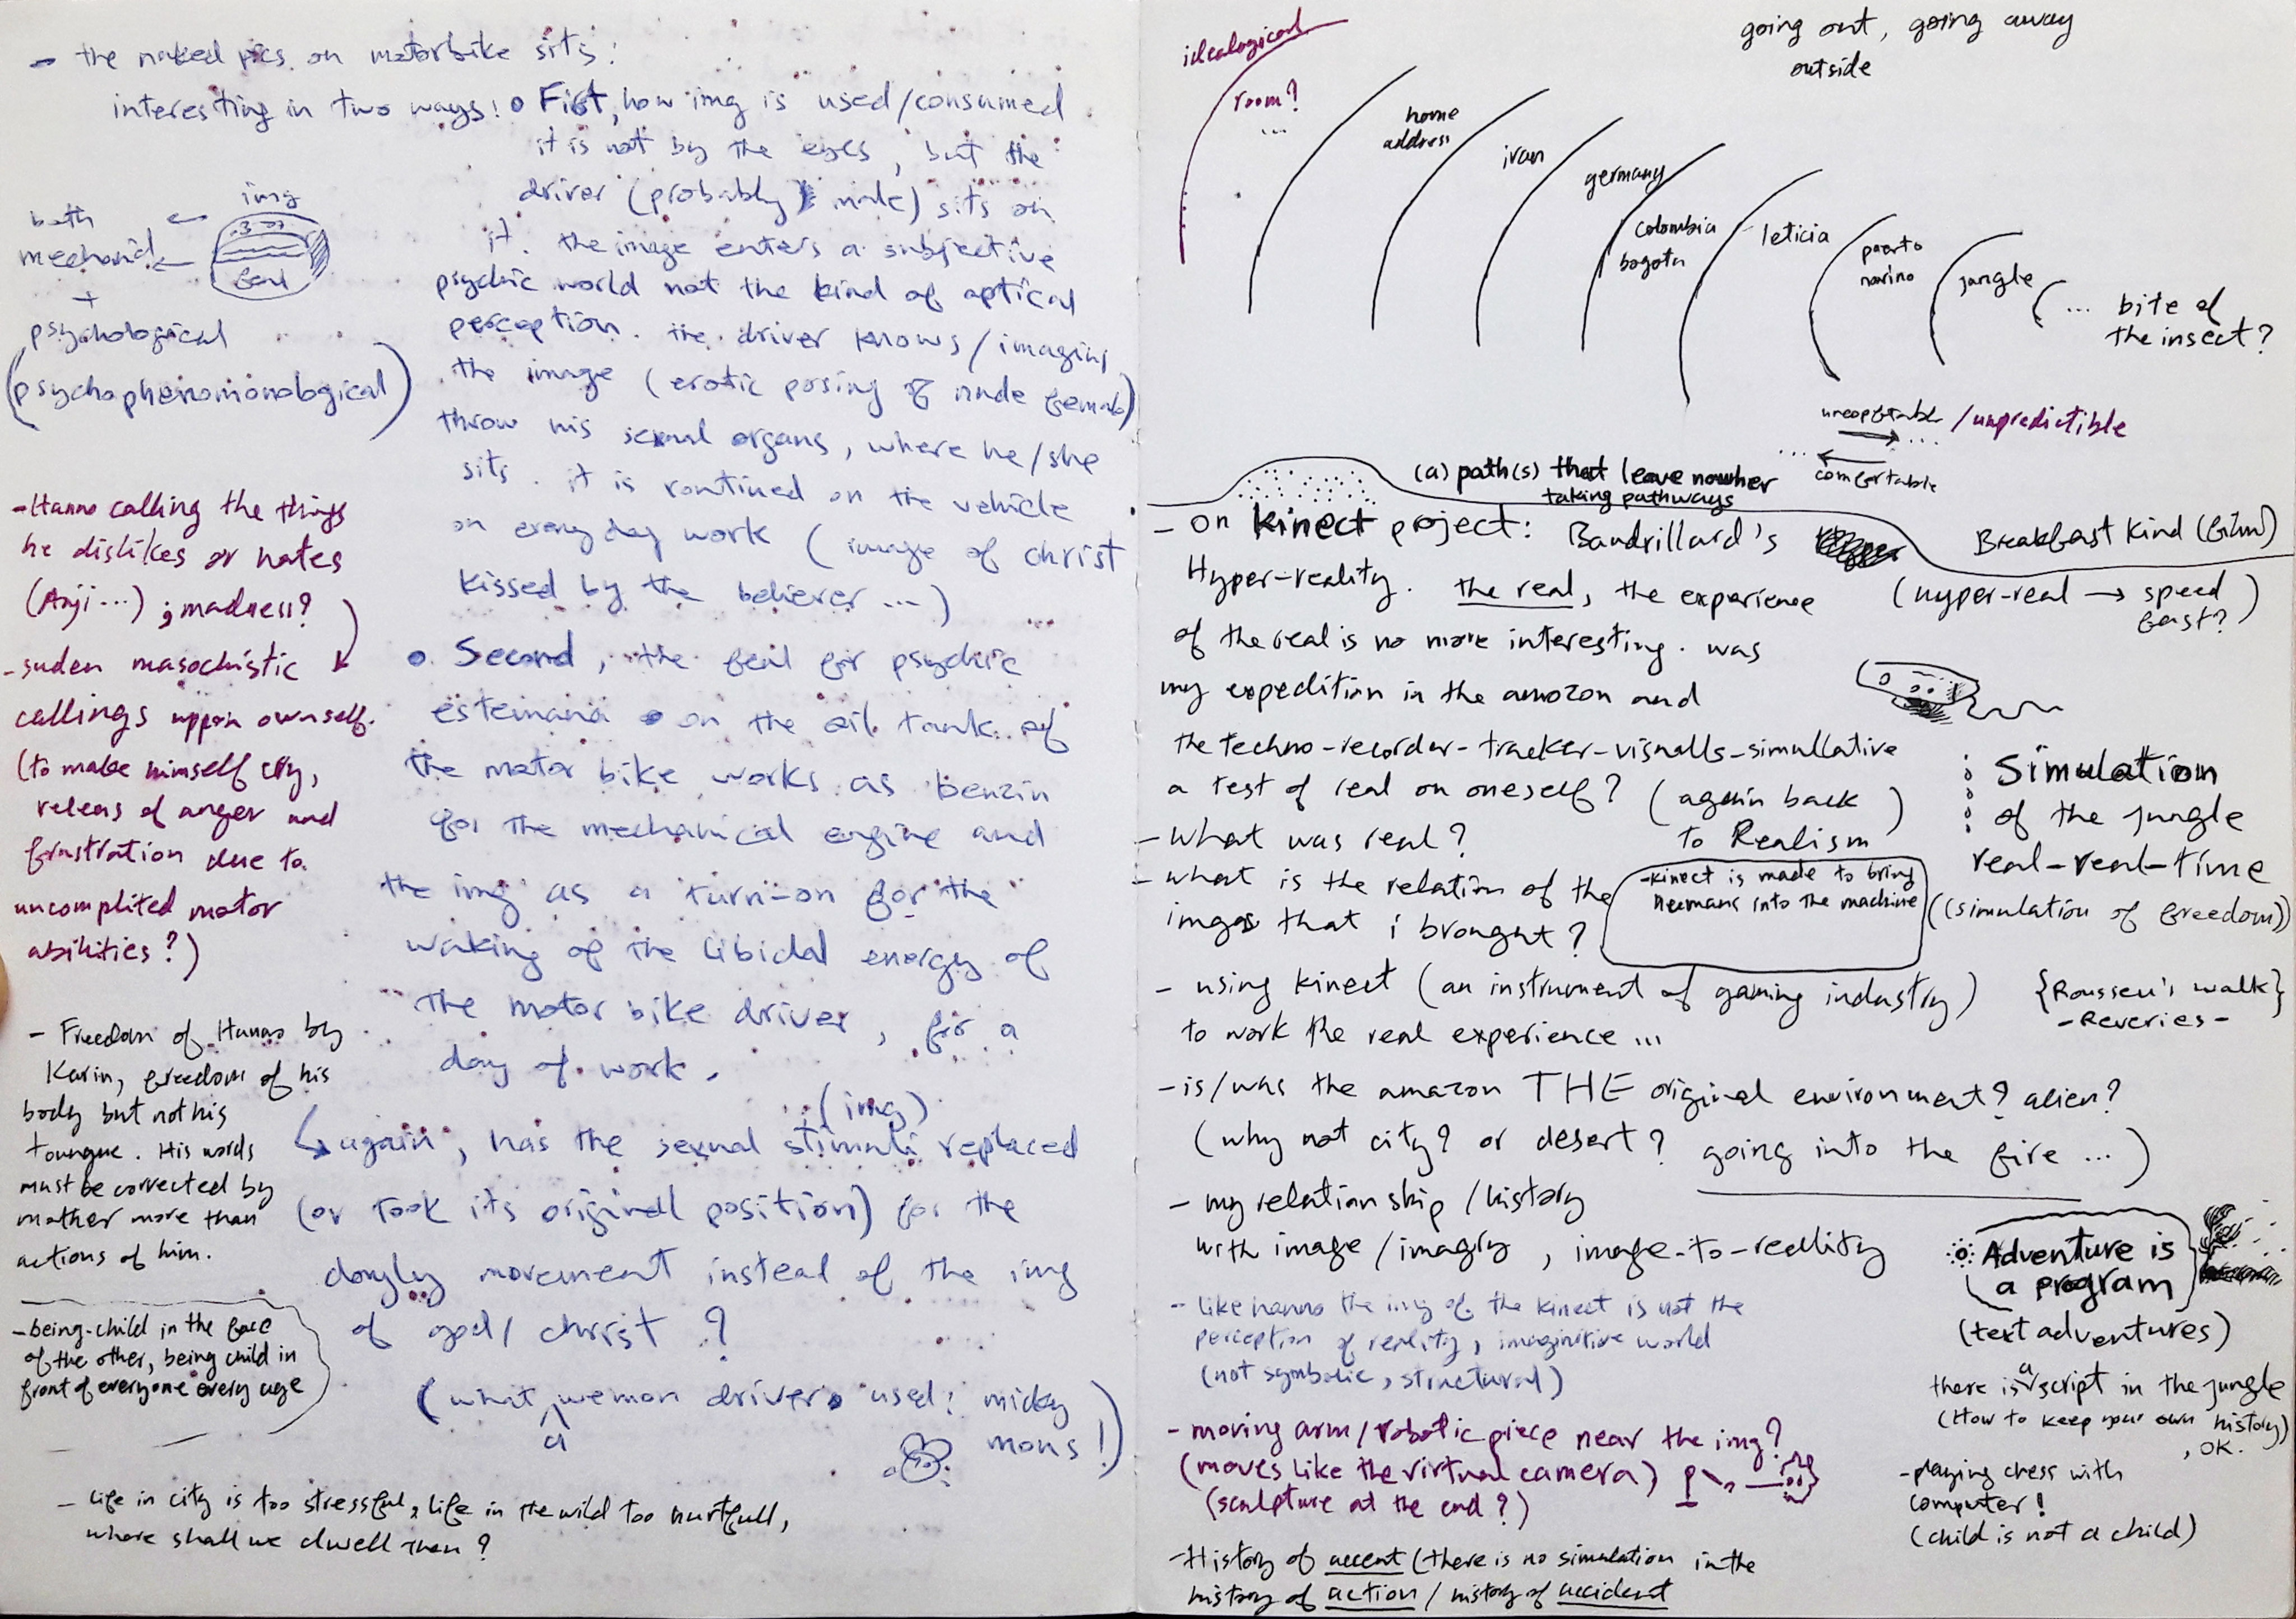 - the naked pics on motorbike sits:
interesting in two ways: o Fist, how img is used/consumed
it is not by the eyes, but the
driver (probably male) sits on
it. the image enters a subjective
psychic world not the kind of optical
perception. the driver knows/imagins
the image (erotic posing of nude female)
throw his sexual organs, where he/she
sits. it is routined on the vehicle
on everyday work (image of christ
kissed by the believer ...)
img
both
mechanic
+
psychological
(psychophenomonological)
o Second, the feul for psychic
on the oil tank of
the motor bike works as benzin
for the mechanical engine and
the img as a turn-on for the
waking of the libidal energy of
the motor bike driver, for a
day of work.
(img)
again, has the sexual stimuli replaced
(or took its original position) for the
movement instead of the img
of god/christ?
(what a wemon drivers used: micky
mous!)
- Hanno calling the things
he dislikes or hates
(Anji...); madness?
- suden masochistic
callings uppon ownself.
(to make himself cry,
releas of anger and
frustration due to
uncomplited motor
abilities?)
- Freedom of Hanno by
Karin, freedom of his
body but not his
toungue. His words
must be corrected by
mother more than
actions of him.
- being-child in the face
of the other, being child in
front of everyone every age
- life in city is too stressful, life in the wild too hurtfull,
where shall we dwell then?
going out, going away
outside
idealogical
room?
...
home
address
iran
germany
colombia
bogota
leticia
puerto
narino
jungle
... bite of
the insect?
/unpredictible
...
...
comfortable
(a) path(s) that leave nowher
taking pathways
- on kinect project: Baudrillard's
Hyper-reality. the real, the experience
of the real is no more interesting. was
my expedition in the amozon and
the techno-recorder-tracker-visualls-simullative
a test of real on oneself? (again back
to Realism)
Breakfast kind (film)
(hyper-real → speed
fast?)
Simulation
of the jungle
real-real-time
((simulation of freedom))
- what was real?
- what is the relation of the
imgs that i brought?
- kinect is made to bring
heumans into the machine
- using kinect (an instrument of gaming industry)
to work the real experience...
{Rousseu's walk}
- Reveries -
- is/was the amazon THE original environment? alien?
(why not city? or desert? going into the fire ...)
- my relationship/history
with image/imagry, image-to-reality
Adventure is
a program
(text adventures)
there is a script in the jungle
(How to keep your own history)
, OK.
- playing chess with
computer!
(child is not a child)
- like hanno the img of the kinect is not the
perception of reality, imaginitive world
(not symbolic, structural)
- moving arm/robotic piece near the img?
(moves like the virtual camera)
(sculpture at the end?)
- History of accent (there is no simulation in the
history of action / history of accident